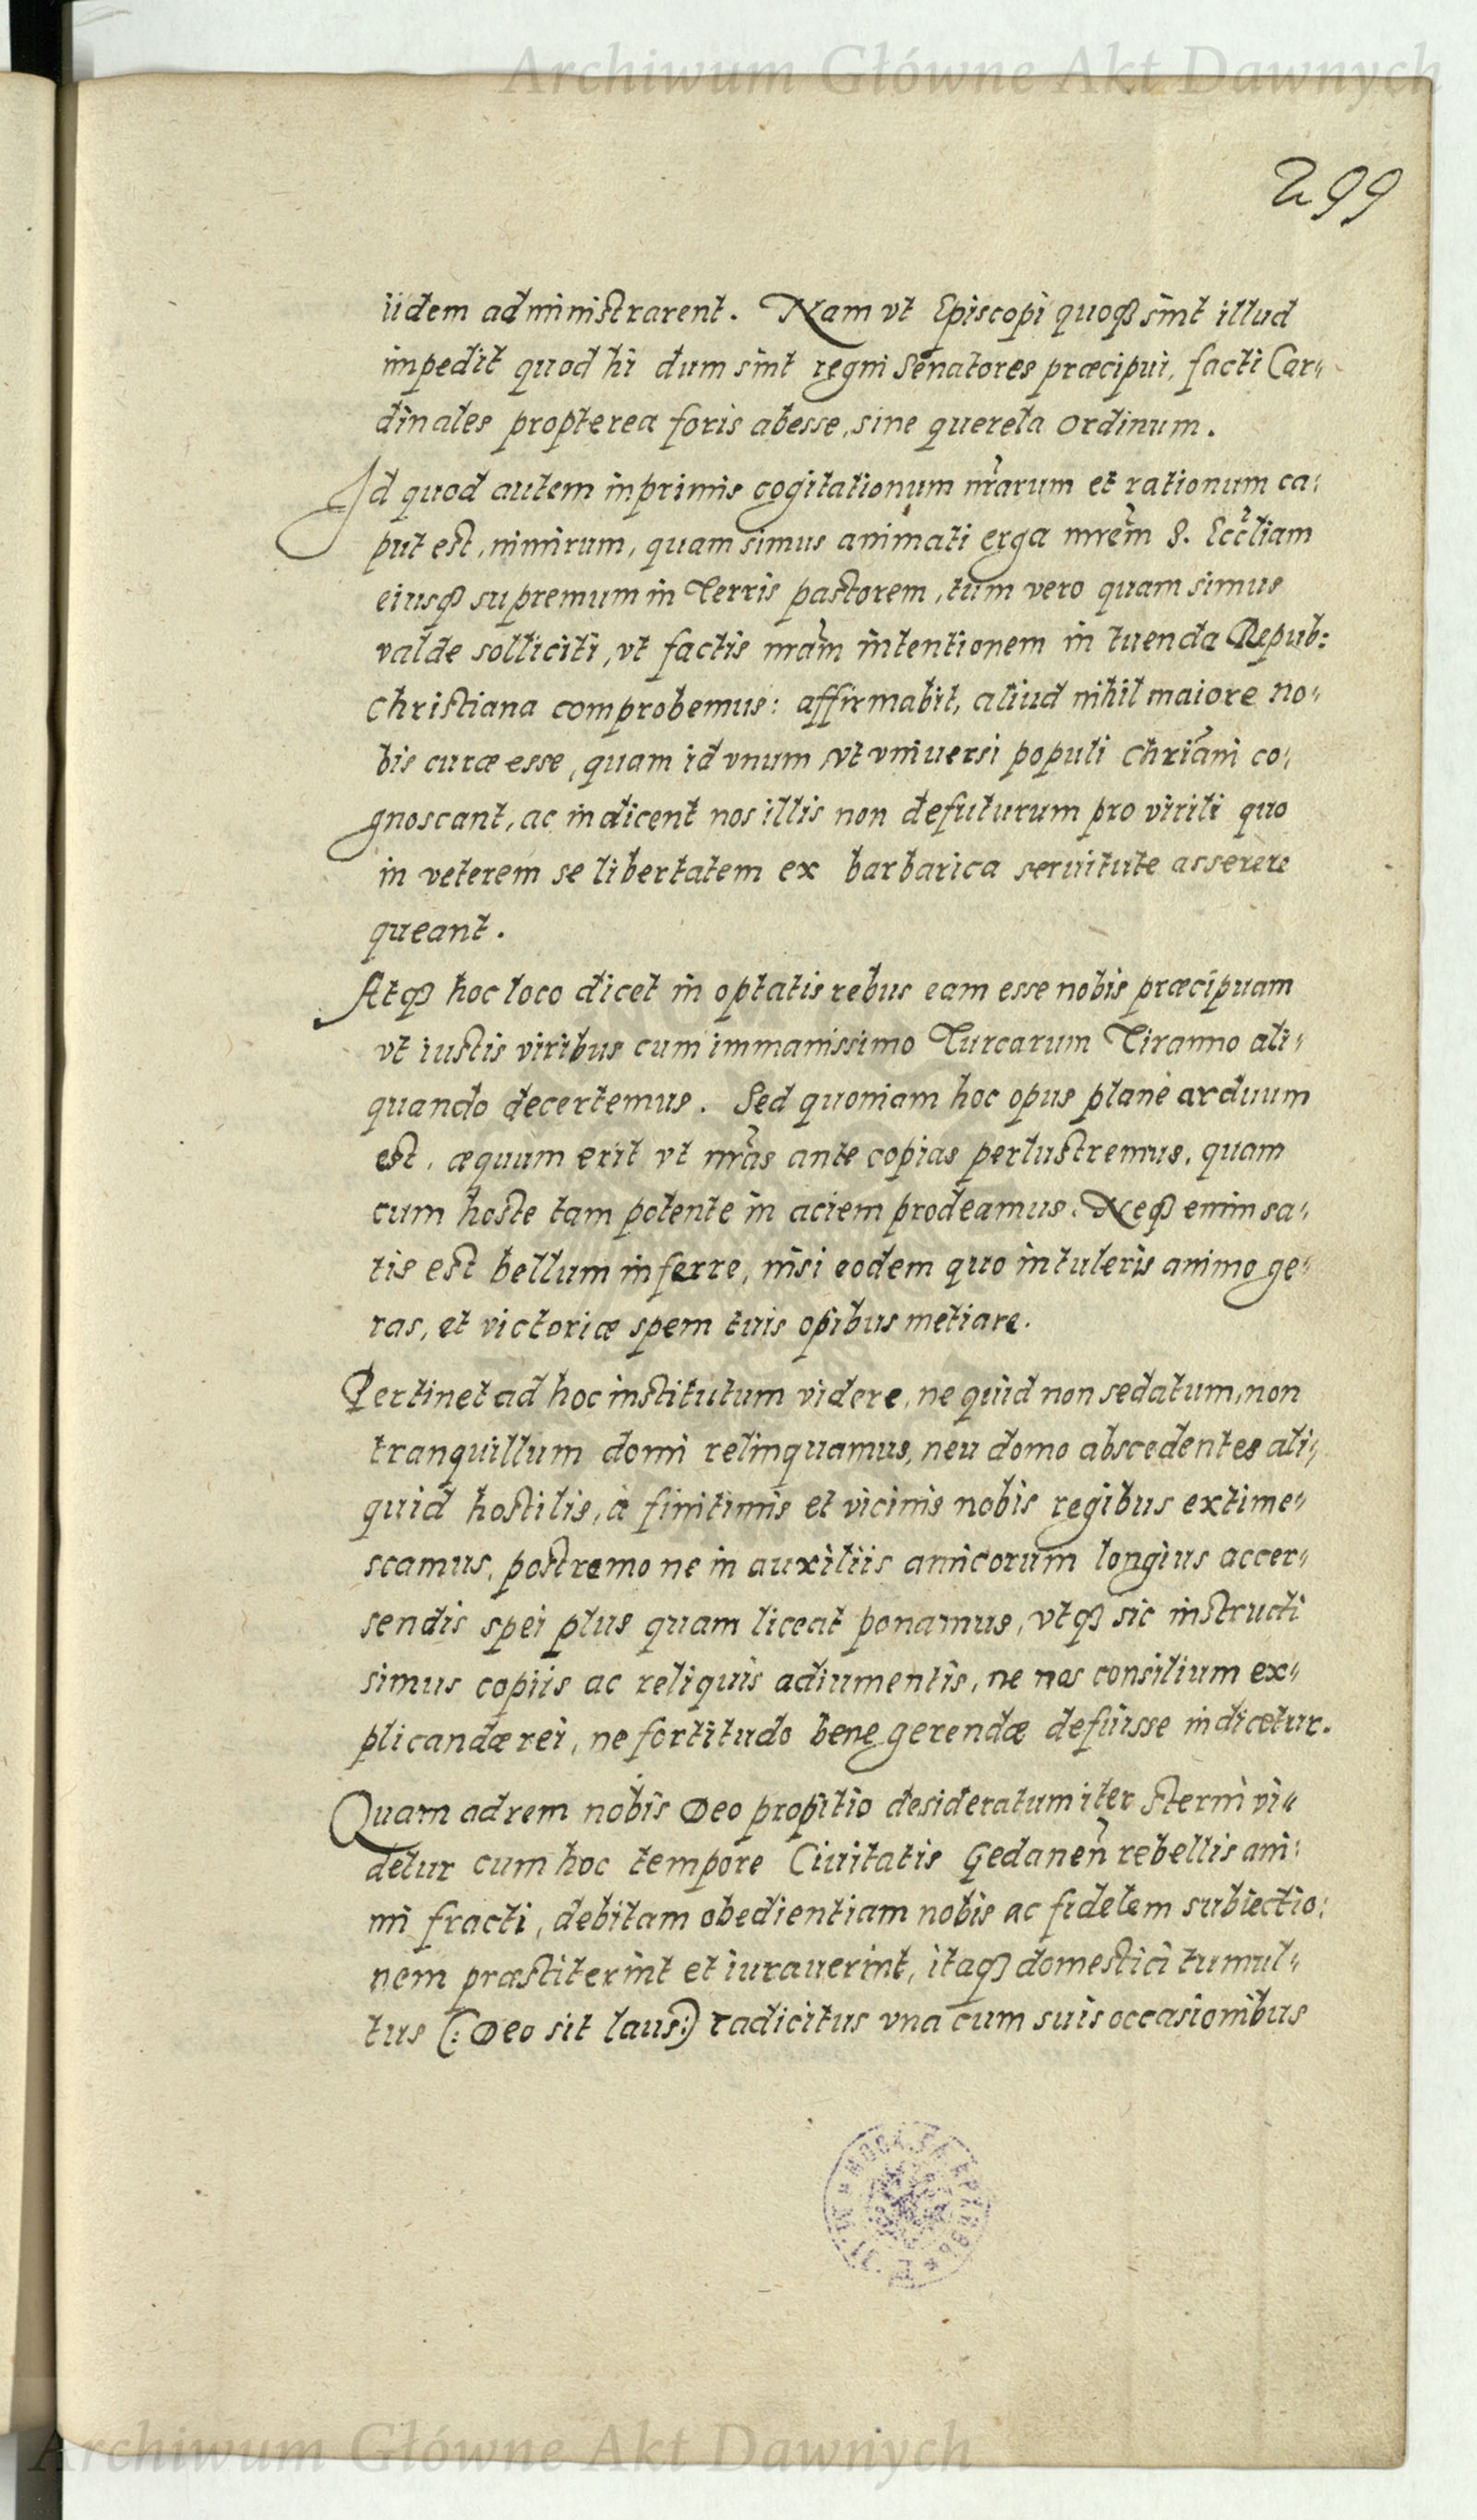 Archiwum Główne Akt Dawnych
299
iidem administrarent. Nam vt Episcopi quoq sint illud
impedit quod hi dum sint regni Senatores præcipui, facti Car„
dinales propterea foris abesse, sine querela ordinum.
Id quod autem inprimis cogitationum nr̃arum et rationum ca:
put est, nimirum, quam simus animati erga mrẽm S. Eccl̃iam
eiusq supremum in Terris pastorem, tum vero quam simus
valde solliciti, vt factis nrãm intentionem in tuenda Repub:
christiana comprobemus: affirmabit, aliud nihil maiore no„
bis curæ esse, quam id vnum vt vniuersi populi chriãni co„
gnoscant, ac indicent nos illis non defuturum pro virili quo
in veterem se libertatem ex barbarica seruitute asserere
queant.
Atq hoc loco dicet in optatis rebus eam esse nobis præcipuam
vt iustis viribus cum immanissimo Turcarum Tiranno ali„
quando decertemus. Sed quoniam hoc opus planè arduum
est, æquum erit vt nrãs ante copias perlustremus, quam
cum hoste tam potente in aciem prodeamus. Neq enim sa„
tis est bellum inferre, nisi eodem quo intuleris animo ge„
ras, et victoriæ spem tuis opibus metiare.
Pertinet ad hoc institutum videre, ne quid non sedatum, non
tranquillum domi relinquamus, neu domo abscedentes ali„
quid hostilis, à finitimis et vicinis nobis regibus extime„
scamus, postremo ne in auxiliis amicorum longius accer„
sendis spei plus quam liceat ponamus, vtq sic instructi
simus copiis ac reliquis adiumentis, ne nos consilium ex„
plicandæ rei, ne fortitudo bene gerendæ defuisse indicetur.
Quam ad rem nobis Deo propitio desideratum iter sterni vi„
detur cum hoc tempore Ciuitatis Gedaneñ rebellis ani:
mi fracti, debitam obedientiam nobis ac fidelem subiectio:
nem præstiterint et iurauerint, itaq domestici tumul„
tus (: Deo sit laus :) radicitus vna cum suis occasionibus
Archiwum Główne Akt Dawnych